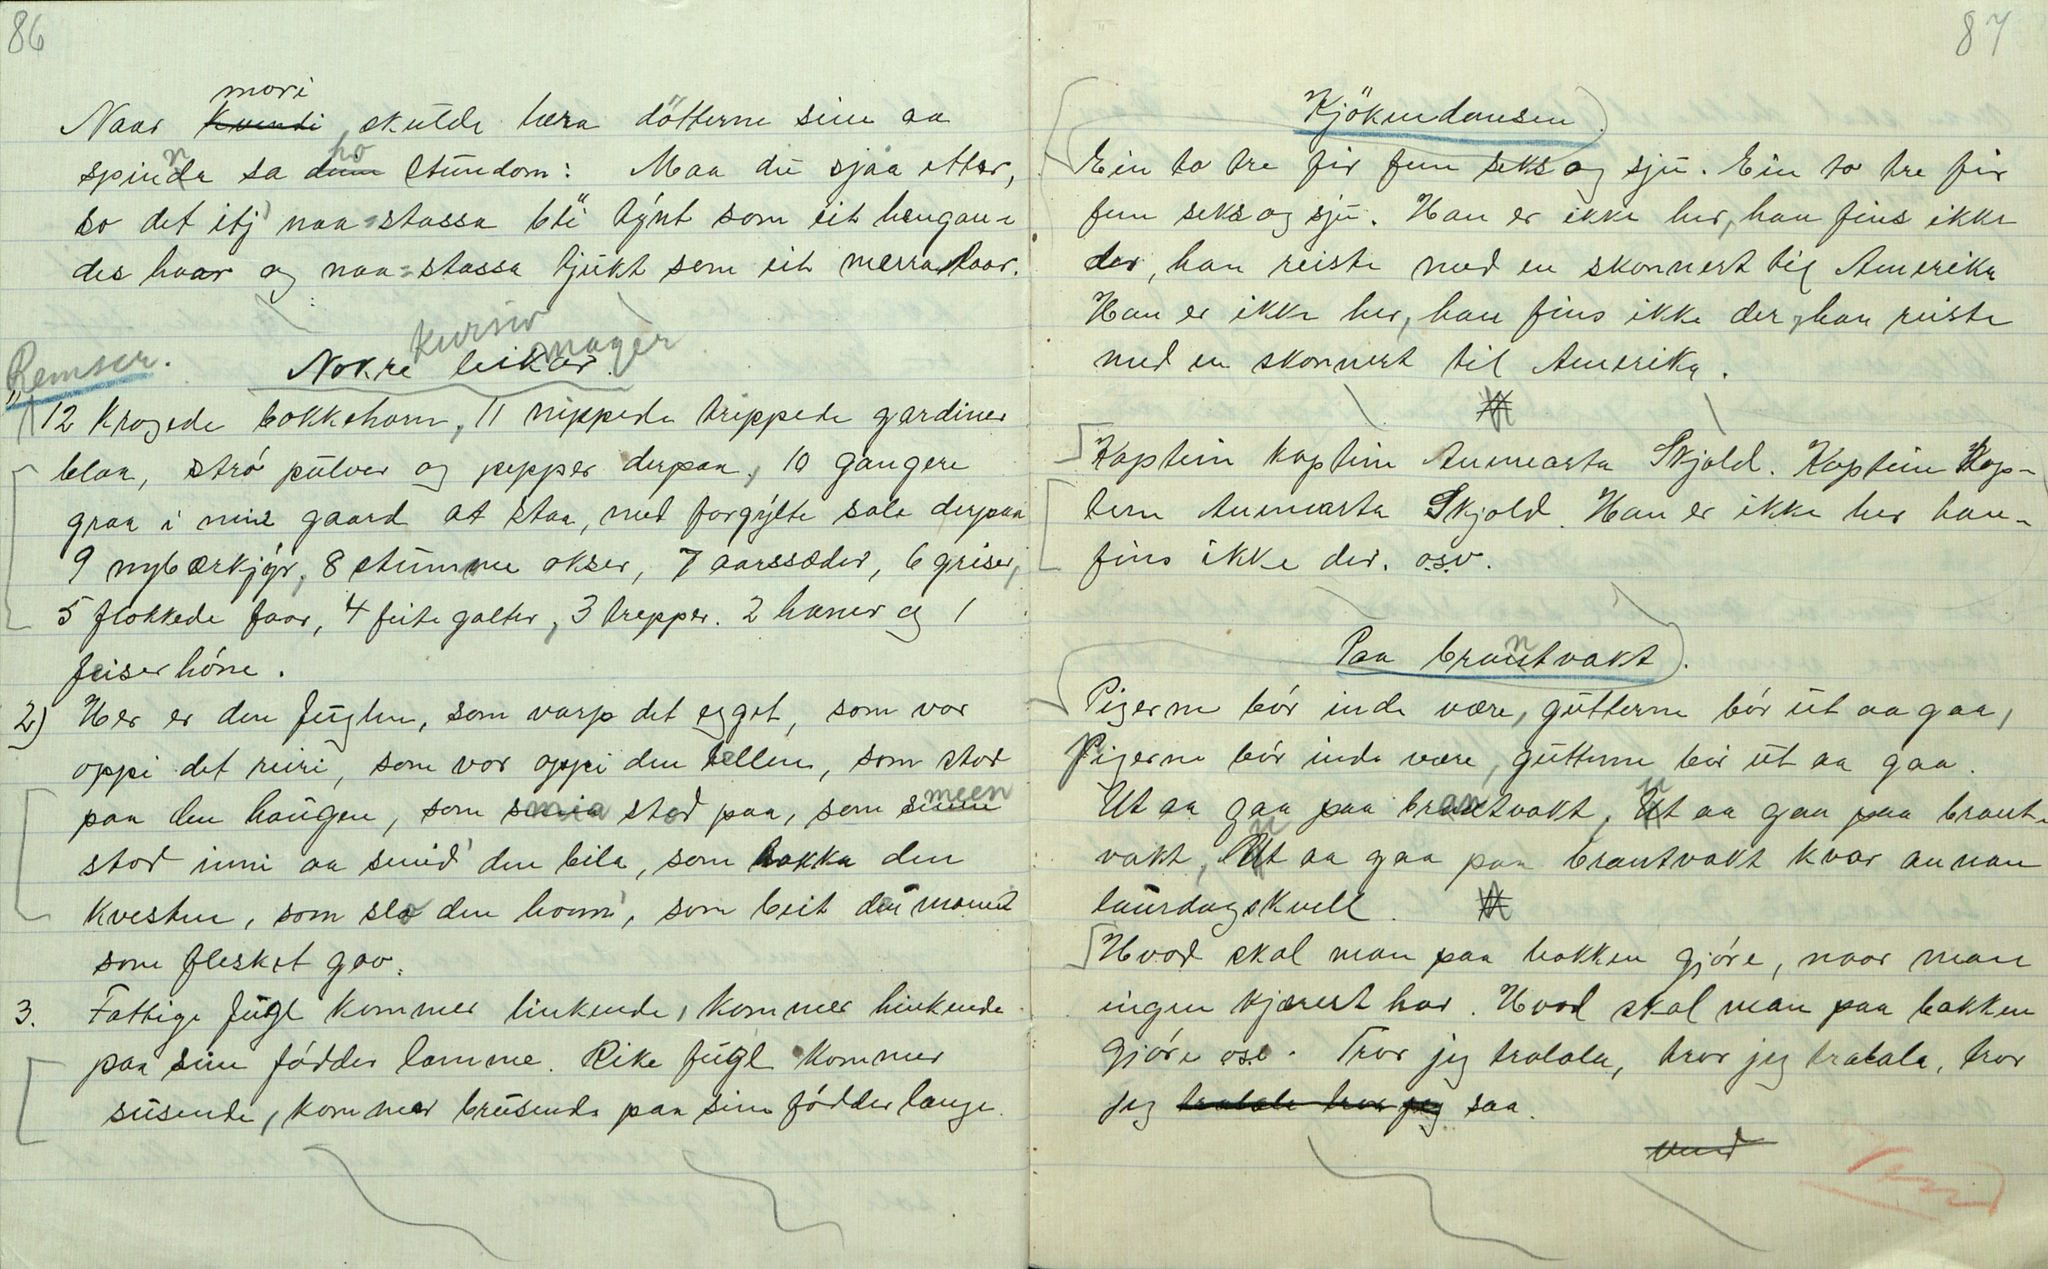 86
mori
Naar Kvendi skulde læra döttern sine aa
spinna sa ho stundom: Maa du sjaa etter,
so det itj naa-stassa bli tynt som eit hengan-
des haar og naa-stassa tjukt som eit merralaar.
kursiv
mager
Remser. Nokre leikar.
12 krogede bokkehorn, 11 nippede trippede gardiner
blaa, strö pulver og pepper derpaa, 10 gangere
graa i mine gaard at staa, med forgylte sale derpaa
9 nybærkjýr, 8 stumme okser, 7 aarssæder, 6 griser,
5 flokkede faar, 4 feite galter, 3 trepper. 2 haner og 1
feiser höne.
2) Her er den fuglen, som varp det egget, som var
oppi det reiri, som var oppi den tellen, som stod
paa den haugen, som smia stod paa, som smeen
stod inni aa smid' den bila, som hakka den
kvesten, som slo den horni, som beit den mannen
som flesket gav.
3. Fattige fugl kommer linkende, kommer hinkende
paa sine födder lamme. Rike fugl kommer
susende, kommer brusende paa sine födder lange.
87
Kjökendansen.
Ein to tre fir fem seks og sju. Ein to tre fir
fem seks og sju. Han er ikke her, han fins ikke
der, han reiste med en skonnert til Amerika
Han er ikke her, han fins ikke der, han reiste
med en skonnert til Amerika.
Kaptein kaptein Annmarta Skjold. Kaptein Kap-
tein Annmarta Skjold. Han er ikke her han
fins ikke der. o.s.v.
Paa branntvakt.
Pigerne bör inde være, gutterne bör ut aa gaa,
Pigerne bör inde være, gutterne bör ut aa gaa.
Ut aa gaa paa brantvakt, ut aa gaa paa brant-
vakt, ut aa gaa paa brantvakt kvar annan
laurdagskvell.
Hvad skal man paa bakken gjöre, naar man
ingen kjærest har. Hvad skal man paa bakken
gjöre o.s.v. Tror jeg tralala, tror jeg tralala, tror
jeg tralala tror jeg saa.
Vend
Vend